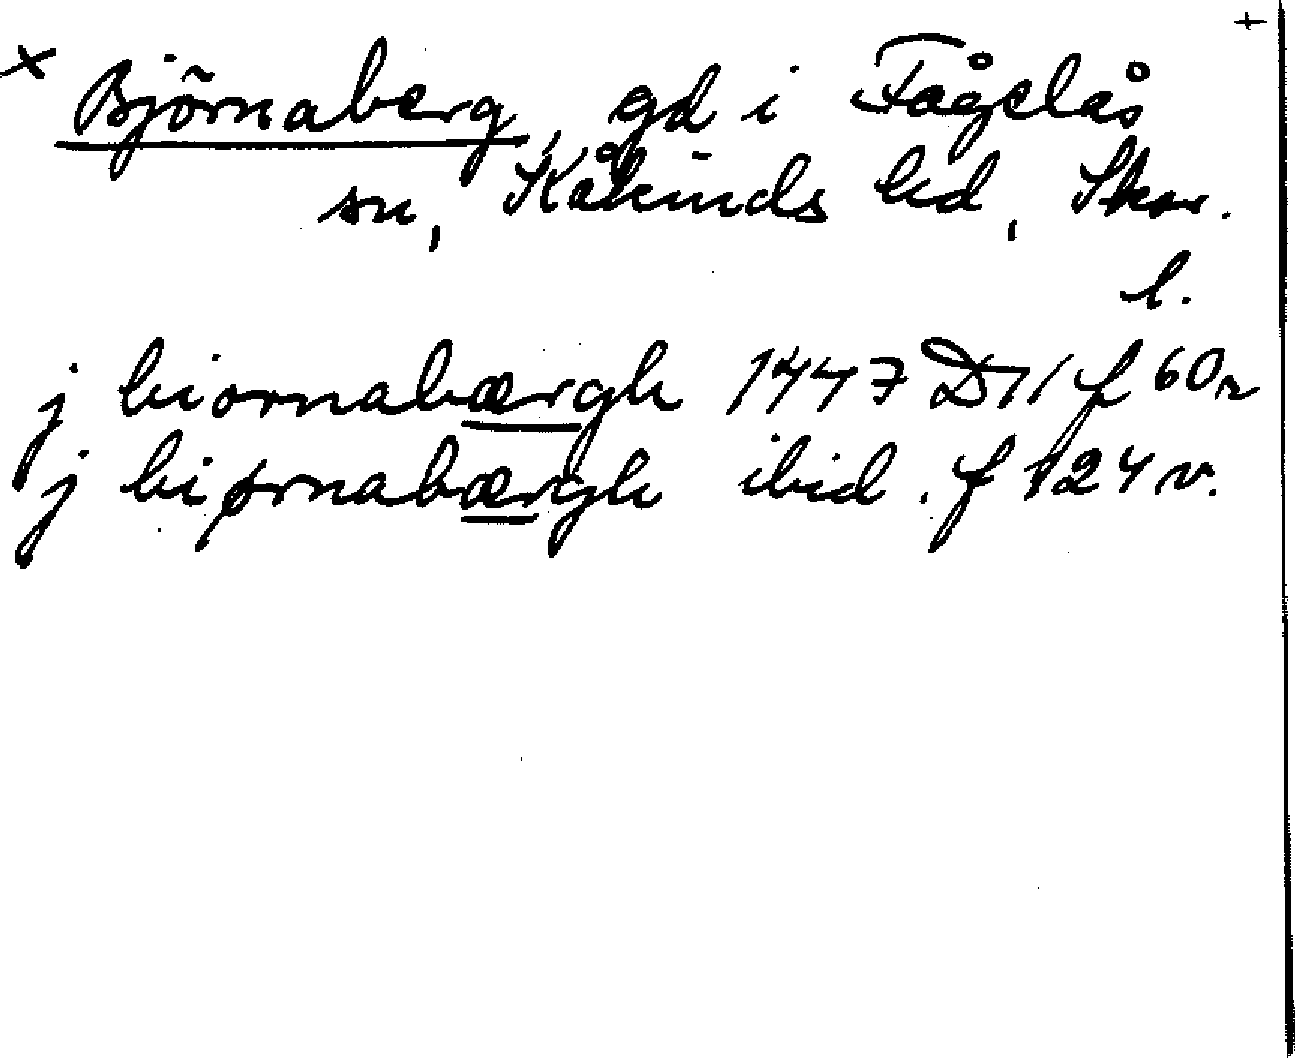 × Björnaberg, gd i Fågelås +
sn, Kåkinds hd, Skar.
l.
j biornabærgh 1447 D 11 f 60 r
j biørnabærgh ibid. f 124 v.